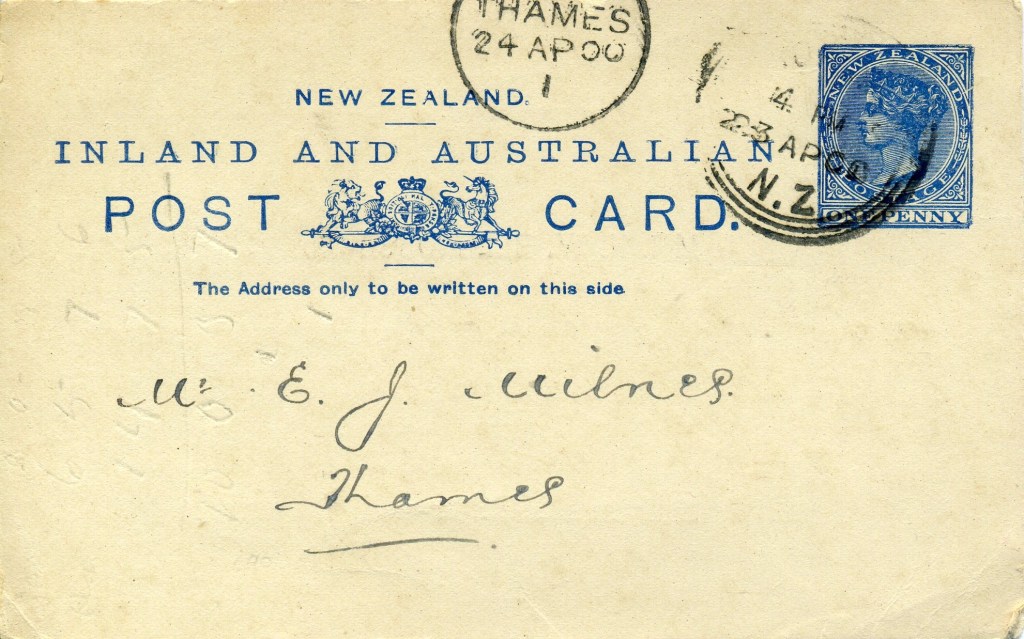 THAMES
24 AP 00
1
NEW ZEALAND.
INLAND AND AUSTRALIAN
POST CARD.
The Address only to be written on this side.
NEW ZEALAND
4 PM
23 AP 00
N.Z.
ONE PENNY
Mr. E. J. Milnes.
Thames